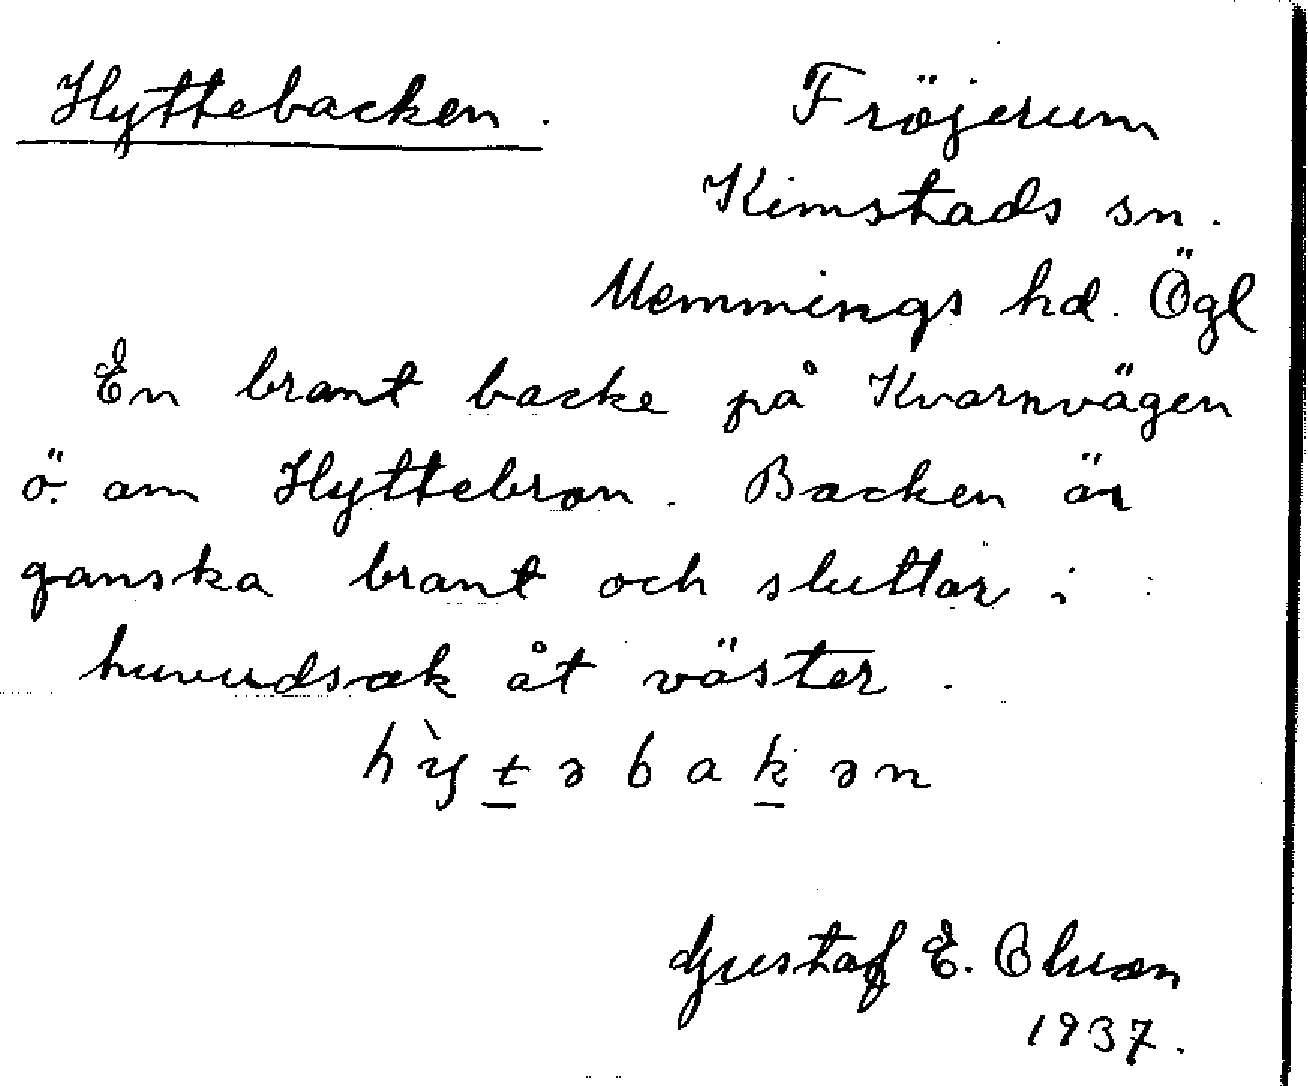 Hyttebacken. Fröjerum
Kimstads sn.
Memmings hd. Ögl
En brant backe på Kvarnvägen
ö. om Hyttebron. Backen är
ganska brant och sluttar i
huvudsak åt väster.
hỳt̲əbak̲ən
Gustaf E.
1937.